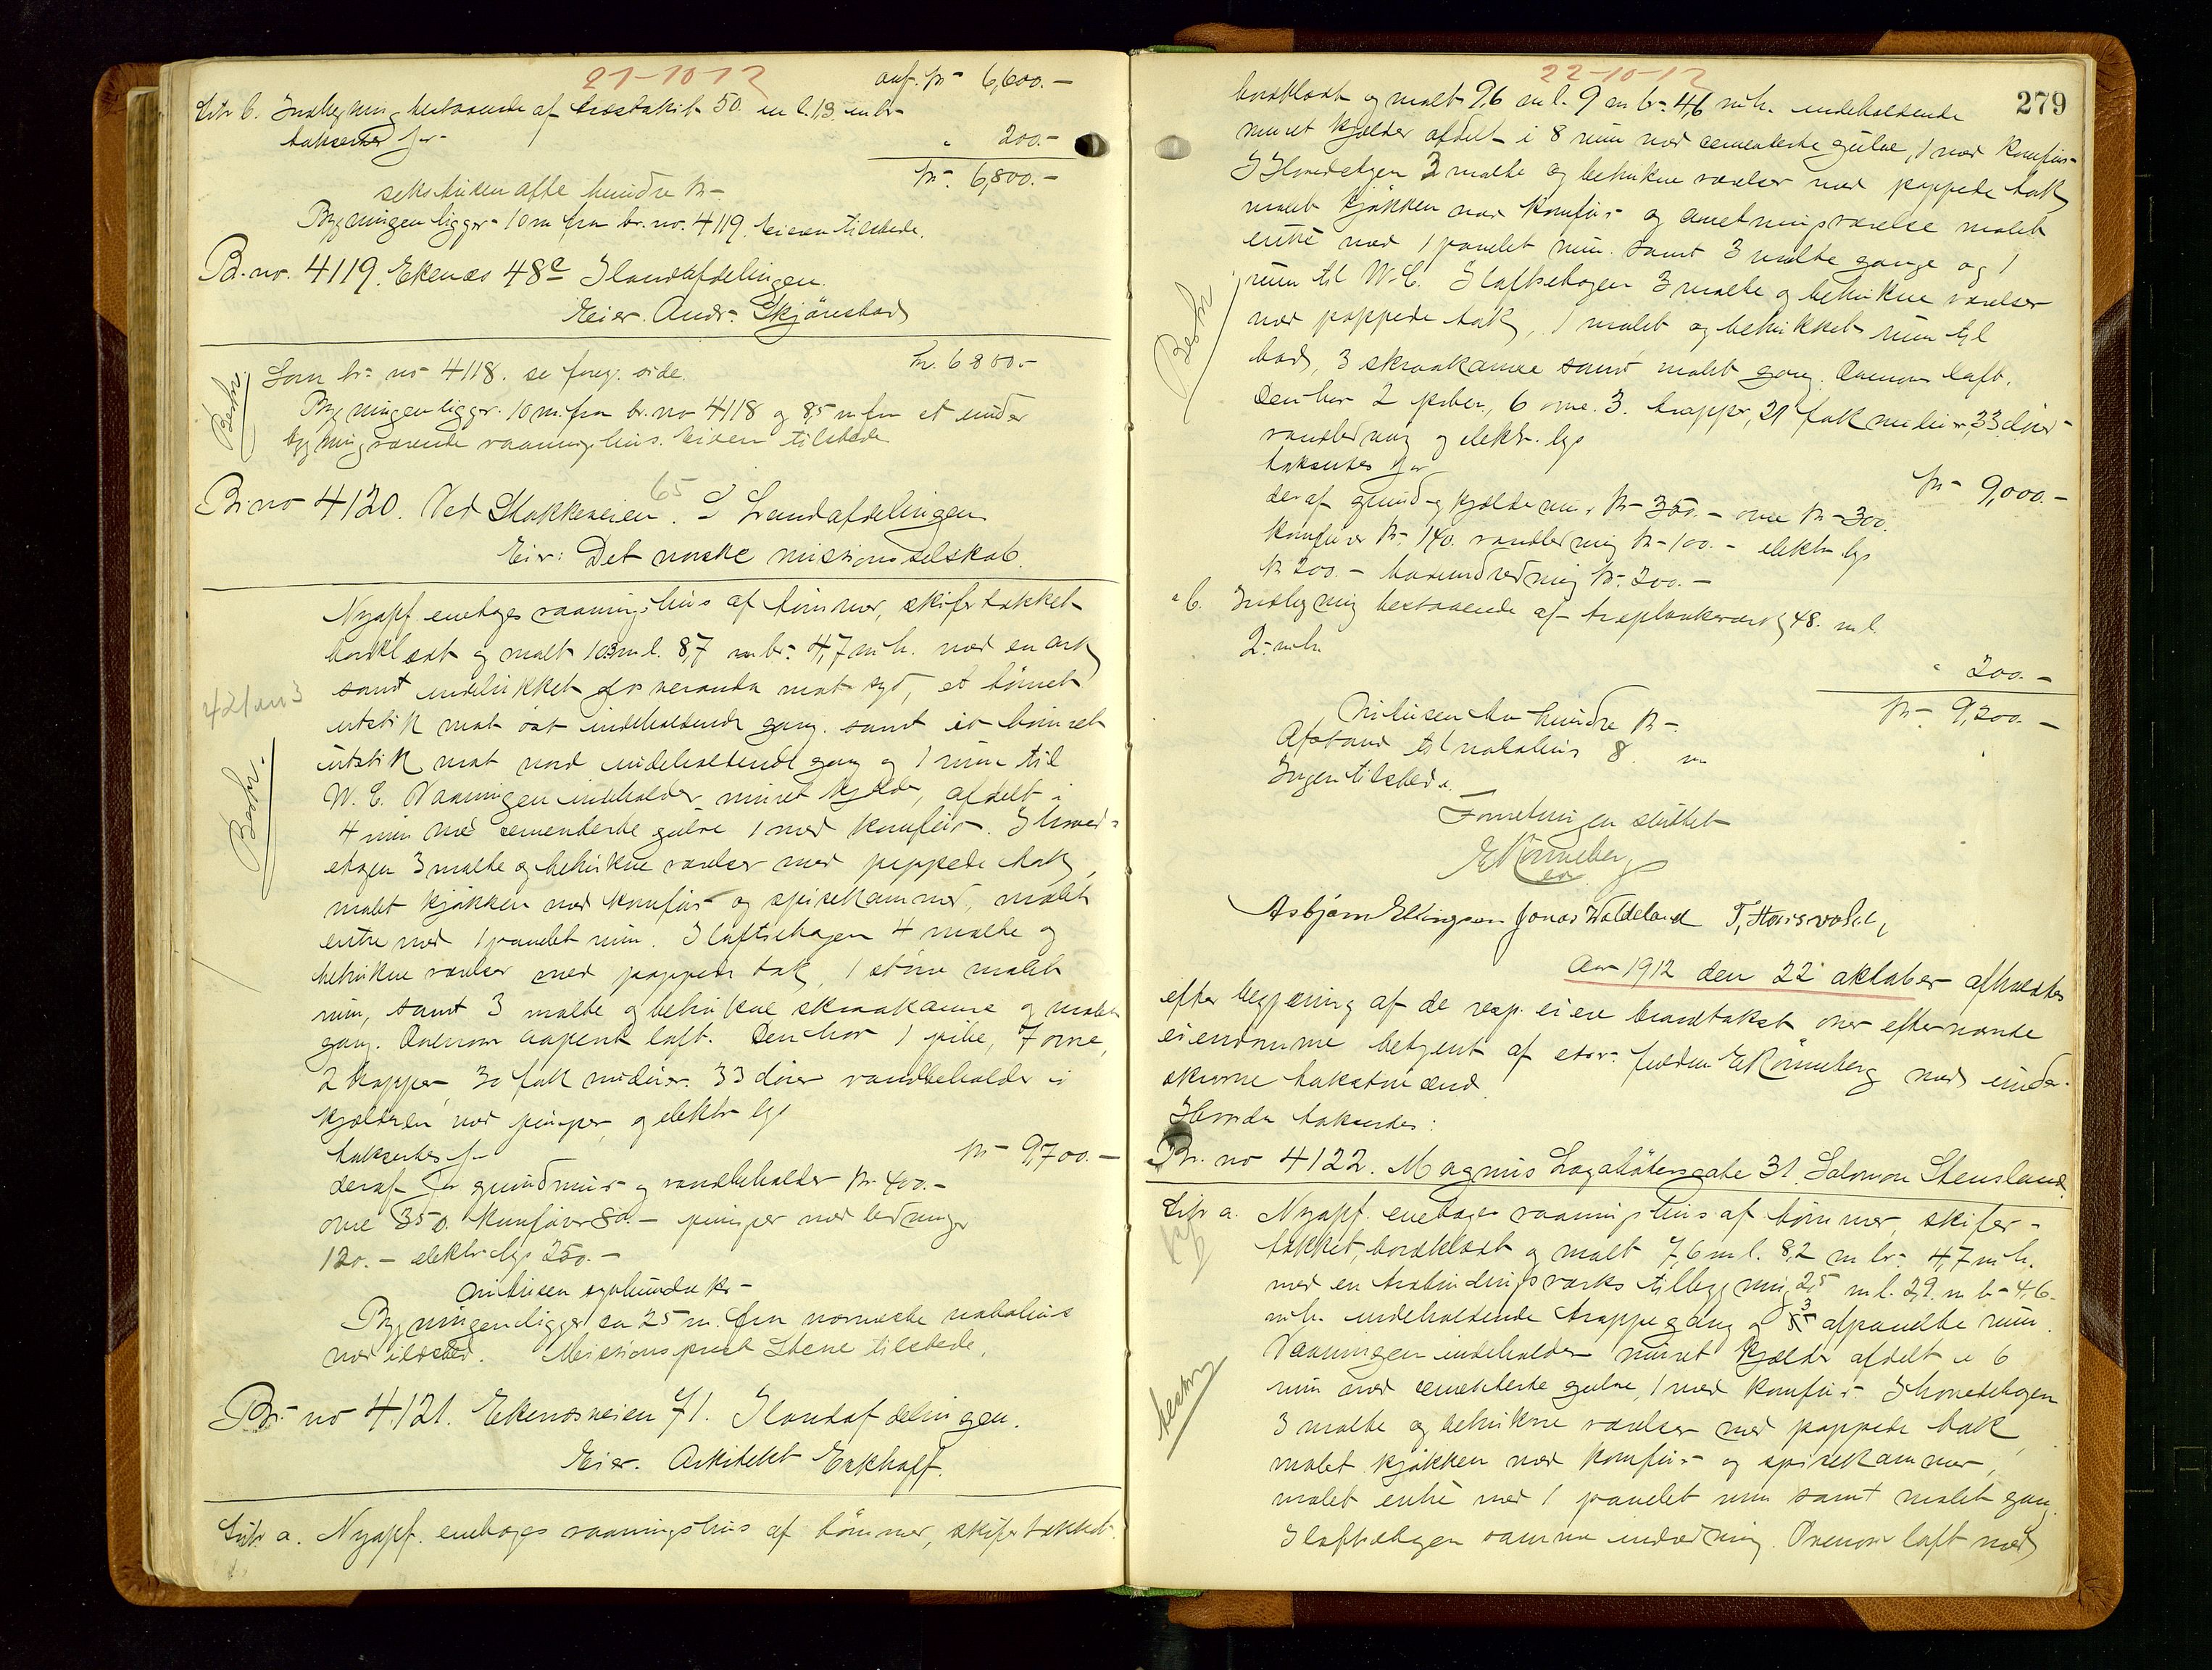 21-10-12
anf. kr 6,600.-
Litr b. Indhegning bestaaende af træstakit 50. m l. 1,3. m br-
takseres for " 200.-
kr. 6,800.-
sekstusen otte hundre kr-
Bygningen ligger 10 m fra br. no. 4119. Eieren tilstede.
Br. no. 4119. Ekenæs 48c Ilandafdelingen.
Eier. Andr. Skjönstad
Beskr.
Som br. no 4118. se foreg. side. kr. 6800.-
Bygningen ligger 10 m. fra br. no 4118 og 8,5 m fra et under
bygning værende vaaningshus. Eieren tilstede
Br. no 4120. Ved Stokkeveien. 65 I Landafdelingen
Eier: Det norske missionsselskab.
Nyopf. enetages vaaningshus af tömmer, skifertækket
bordklædt og malt 10,3 m l. 8,7 m br. 4,7 m h. med en ark
samt indelukket glasveranda mot syd, et tömret
utstik mot öst indeholdende gang. samt et tömret
utstik mot nord indeholdende gang og 1 rum til
W. C. Vaaningen indeholder muret kjelder, afdelt i
4 rum med cementerte gulve 1 med komfur. I hoved-
etagen 3 malte og betrukne værelser med pappede tak,
malet kjökken med komfur og spisekammer, malet
entre med 1 panelet rum. I loftsetagen 4 malte og
betrukne værelser med pappede tak, 1 större malet
rum, samt 3 malte og betrukne skraakamre og malet
gang. Ovenover aapent loft. Den har 1 pibe, 7 ovne,
2 trapper, 30 fak vinduer. 33 dörer vandbeholder i
kjelderen med pumper, og elektr lys
takseres for kr 9,700.-
Beskr.
deraf for grundmur og vandbeholder kr. 400.-
ovne 350. komfurer 80.- pumper med ledninger
120.- elektr. lys 250.-
nitusen syvhundre kr-
Bygningen ligger ca 25 m. fra nærmeste nabohus
med ildsted. Missionsprest Stene tilstede.
Br. no 4121. Ekenæsveien 71. Ilandafdelingen.
Eier. Arkitekt Eckhoff.
Litr. a. Nyopf. enetages vaaningshus af tömmer, skifertækket
22-10-12
279
bordklædt og malt 9,6 m l. 9 m br. 4,6 m h. indeholdende
muret kjelder afdelt i 8 rum med cementerte gulve, 1 med komfur
I Hovedetagen 3 malte og betrukne værelser med pappede tak
malet kjökken med komfur og anretningsværelse malet
entré med 1 panelet rum. samt 3 malte gange og 1
rum til W. C. I loftsetagen 3 malte og betrukne værelser
med pappede tak, 1 malet og betrukket rum til
bad, 3 skraakamre samt malet gang. Ovenover loft.
Den har 2 piber, 6 ovne. 3. trapper, 21 fak vinduer, 33 dörer
vandledning og elektr. lys
Beskr
takseres for kr 9,000.-
deraf grund og kjeldermur kr 350.- ovne kr 300.
komfurer kr. 140. vandledning kr 100.- elektr. lys
kr 200.- badeindredning kr. 200.-
" b. Indhegning bestaaende af træplankeverk 48. m l.
2. m h " 200.-
kr 9,200.-
Nitusen to hundre kr-.
Afstand til nabohus 8. m
Ingen tilstede.
Forretningen sluttet
E Rönneberg
Asbjørn Ellingsen Jonas Waldeland
Aar 1912 den 22 oktober afholdtes
efter begjæring af de resp. eiere brandtakst over efternævnte
eiendomme betjent af edsv. fuldm E Rönneberg med under-
skrevne takstmænd.
Hvorda takseredes:
Br. no 4122. Magnus Lagabötersgate 31. Salomon Stensland.
Litr a. Nyopf. enetages vaaningshus af tömmer, skifer-
tækket, bordklædt og malt 7,6 m l. 8,2 m br. 4,7 m h.
med en træbindingsverks tilbygning 2,5 m l. 2,2 m b- 4,6.
m h. indeholdende trappegang og 3 afpanelte rum.
Vaaningen indeholder muret kjelder afdelt i 6
rum med cementerte gulve, 1 med komfur. I hovedetagen
3 malte og betrukne værelser med pappede tak,
malet kjökken med komfur og spisekammer,
malet entré med 1 panelet rum samt malet gang.
I loftsetagen samme indredning. Ovenover loft med